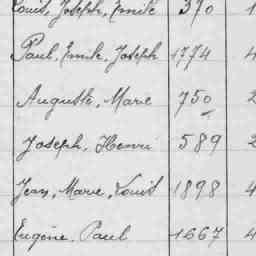 Louis, Joseph, Emile 370 1
Paul, Emile, Joseph 1774 4
Auguste, Marie 750 2
Joseph, Henri 589 2
Jean, Marie, Louis 1898 4
Eugène, Paul 1667 4